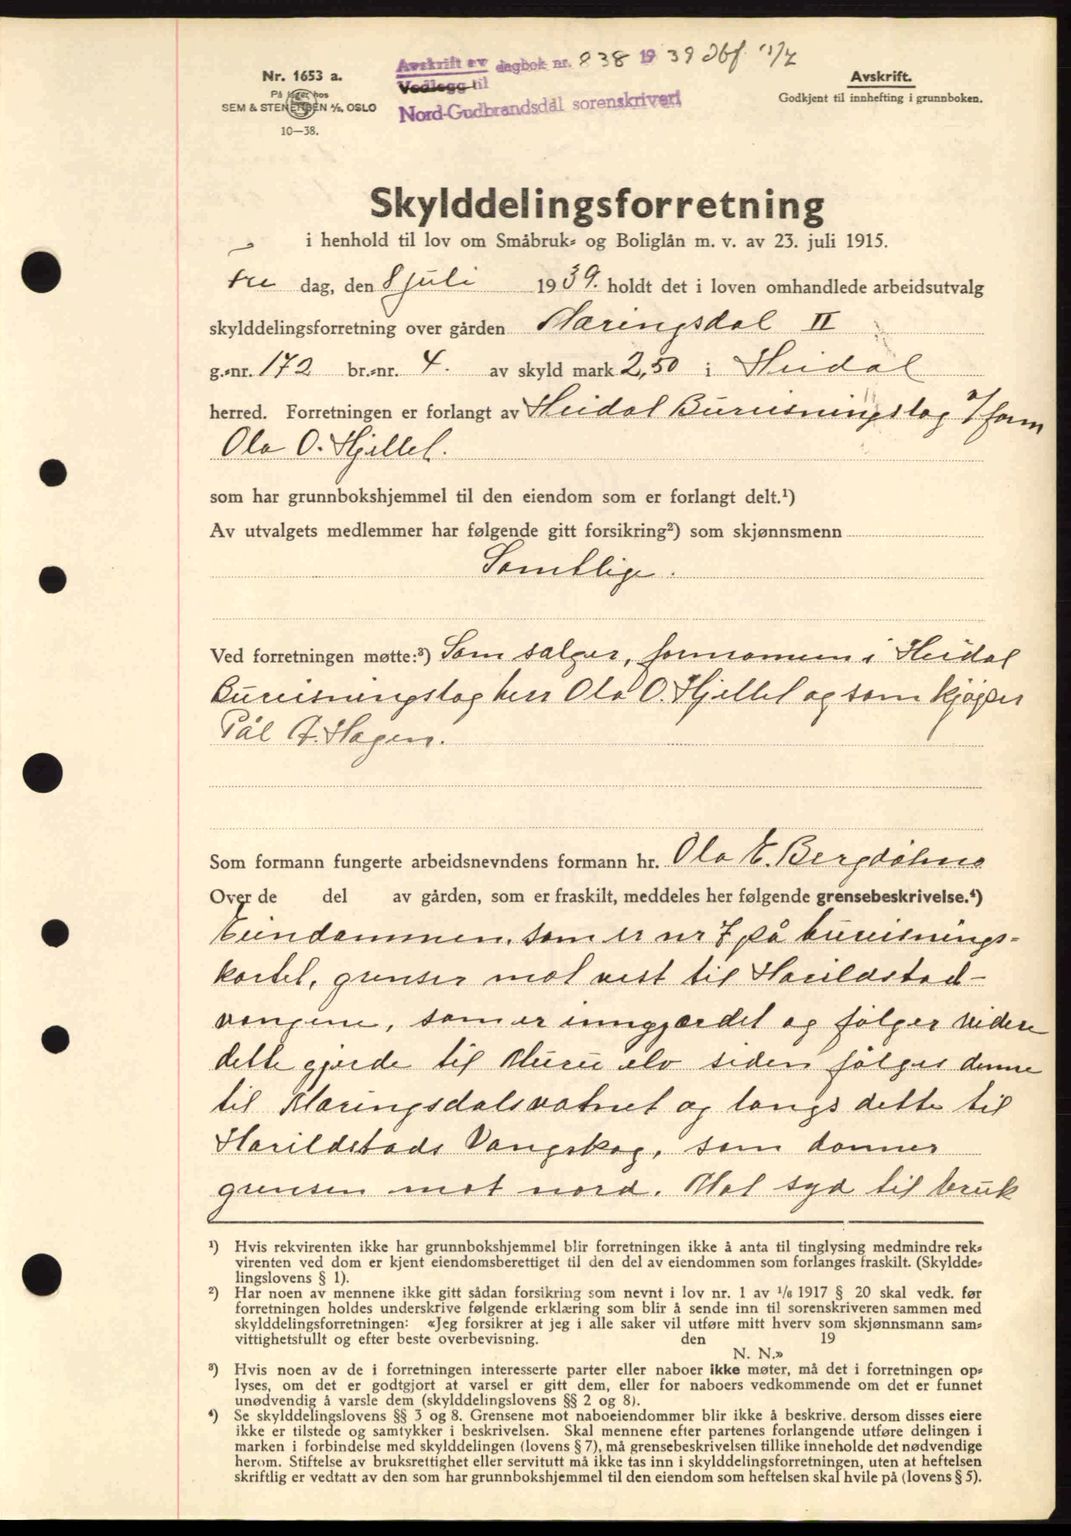 Nr. 1653 a.
På lager hos
SEM & STENERSEN A/S, OSLO
10—38.
Avskrift av dagbok nr. 838 19 39 Dbf. 11/7
Vedlegg til
Nord-Gudbrandsdal sorenskriveri
Avskrift.
Godkjent til innhefting i grunnboken.
Skylddelingsforretning
i henhold til lov om Småbruk- og Boliglån m. v. av 23. juli 1915.
Fre dag, den 8 juli 1939. holdt det i loven omhandlede arbeidsutvalg
skylddelingsforretning over gården Næringsdal II
g.-nr. 172 br.-nr. 4. av skyld mark 2,50 i Heidal
herred. Forretningen er forlangt av Heidal Bureisningslag v/form
Ola O. Hjellel.
som har grunnbokshjemmel til den eiendom som er forlangt delt.¹)
Av utvalgets medlemmer har følgende gitt forsikring²) som skjønnsmenn
Samtlige.
Ved forretningen møtte:³) Som selger, formannen i Heidal
Bureisningslag herr Ola O. Hjellel og som kjøper
Pål A. Hagen.
Som formann fungerte arbeidsnevndens formann hr. Ola E. Bergdølmo
Over de del av gården, som er fraskilt, meddeles her følgende grensebeskrivelse.⁴)
Eiendommen, som er nr 7 på bureisnings-
kartet, grenser mot vest til Harildstad-
vangene, som er inngjærdet og følger videre
dette gjerde til Muru elv siden følges denne
til Næringsdalsvatnet og langs dette til
Harildstads Vangskog, som danner
grensen mot nord. Mot syd til bruk
¹) Hvis rekvirenten ikke har grunnbokshjemmel blir forretningen ikke å anta til tinglysing medmindre rek-
virenten ved dom er kjent eiendomsberettiget til den del av eiendommen som forlanges fraskilt. (Skyldde-
lingslovens § 1).
²) Har noen av mennene ikke gitt sådan forsikring som nevnt i lov nr. 1 av 1/6 1917 § 20 skal vedk. før
forretningen holdes underskrive følgende erklæring som blir å sende inn til sorenskriveren sammen med
skylddelingsforretningen: «Jeg forsikrer at jeg i alle saker vil utføre mitt hverv som skjønnsmann sam-
vittighetsfullt og efter beste overbevisning. den 19
N. N.»
³) Hvis noen av de i forretningen interesserte parter eller naboer ikke møter, må det i forretningen op-
lyses, om det er godtgjort at varsel er gitt dem, eller for naboers vedkommende om det er funnet
unødvendig å varsle dem (skylddelingslovens §§ 2 og 8).
⁴) Se skylddelingslovens §§ 3 og 8. Grensene mot naboeiendommer blir ikke å beskrive. dersom disses eiere
ikke er tilstede og samtykker i beskrivelsen. Skal mennene efter partenes forlangende utføre delingen i
marken i forbindelse med skylddelingen (lovens § 7), må grensebeskrivelsen tillike inneholde det nødvendige
herom. Stiftelse av bruksrettighet eller servitutt må ikke tas inn i skylddelingsforretningen, uten at heftelsen
skriftlig er vedtatt av den som har grunnbokshjemmel til den eiendom som heftelsen skal hvile på (lovens § 5).